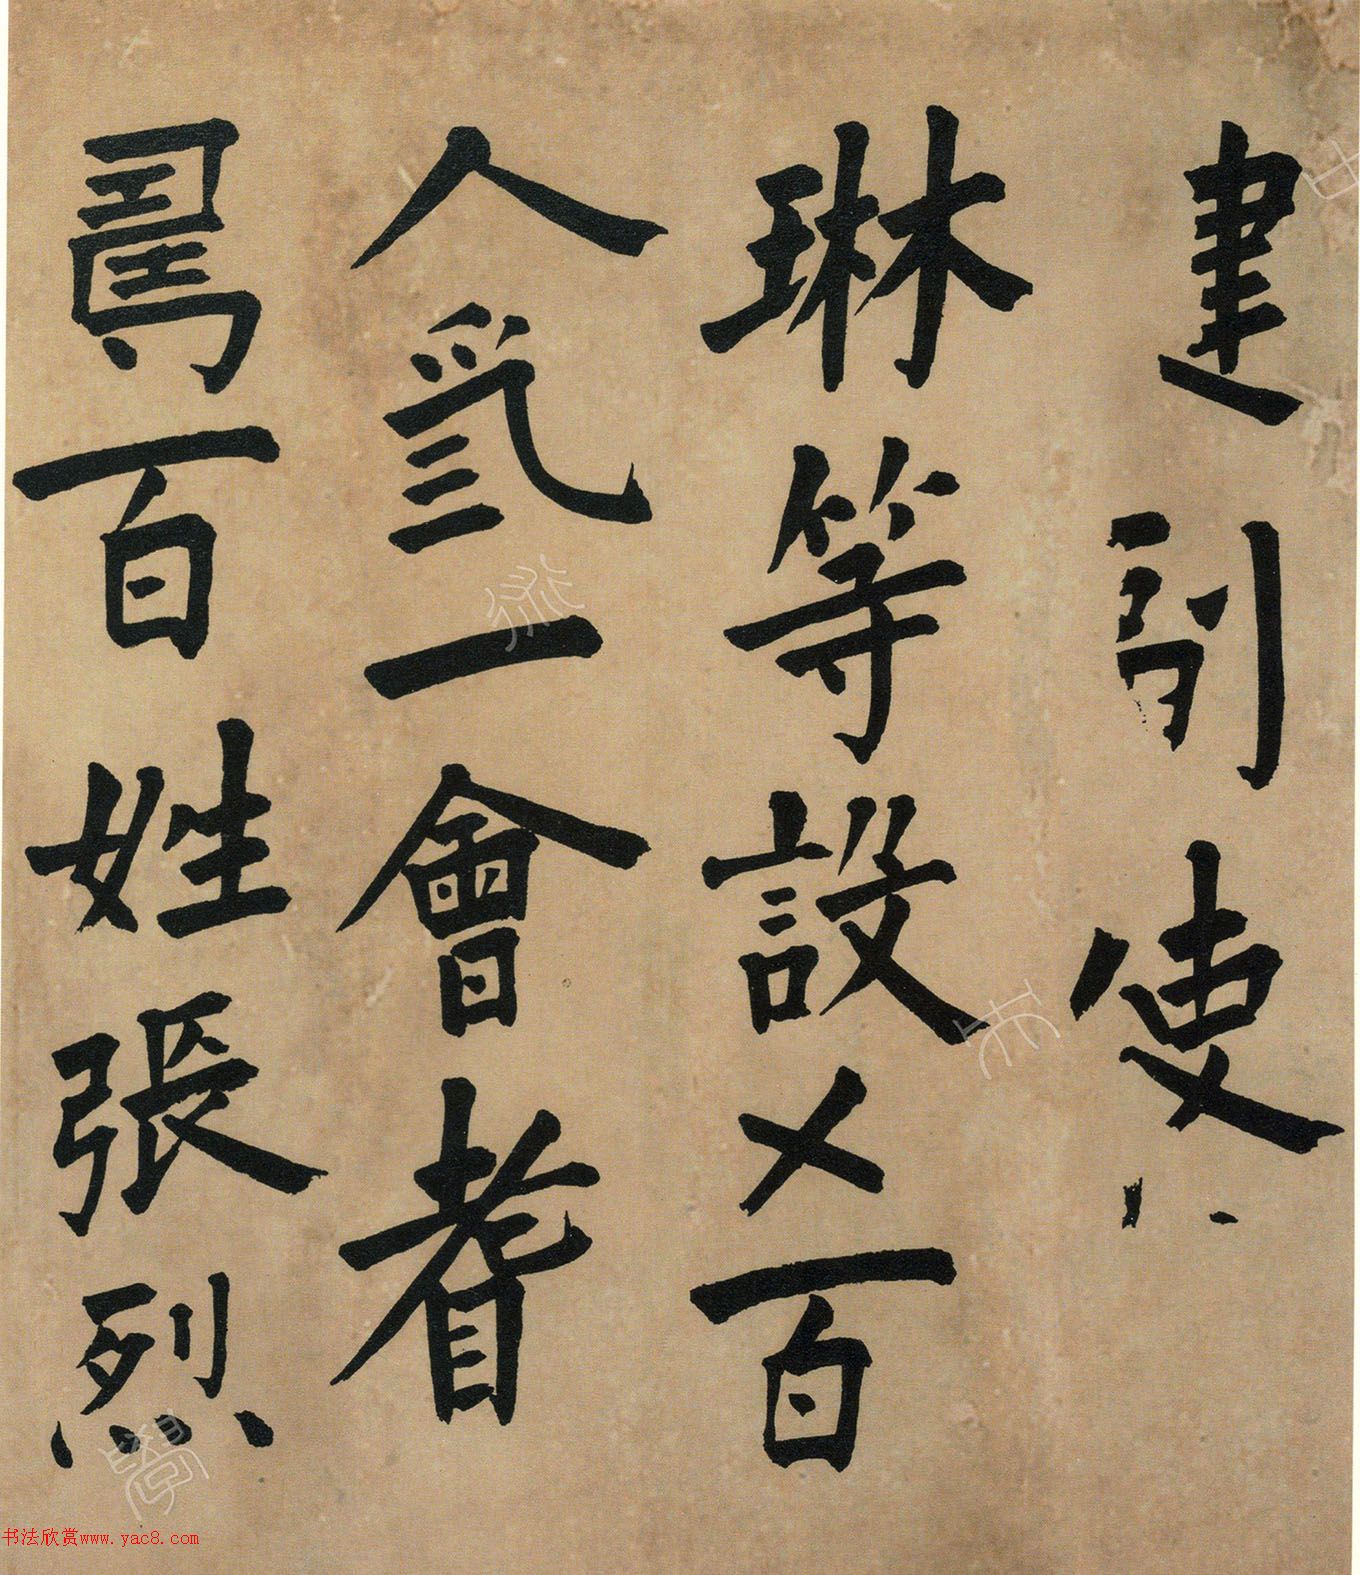 建使
琳等設㐅百
人一會者
百姓張烈
书法欣赏www.yac8.com